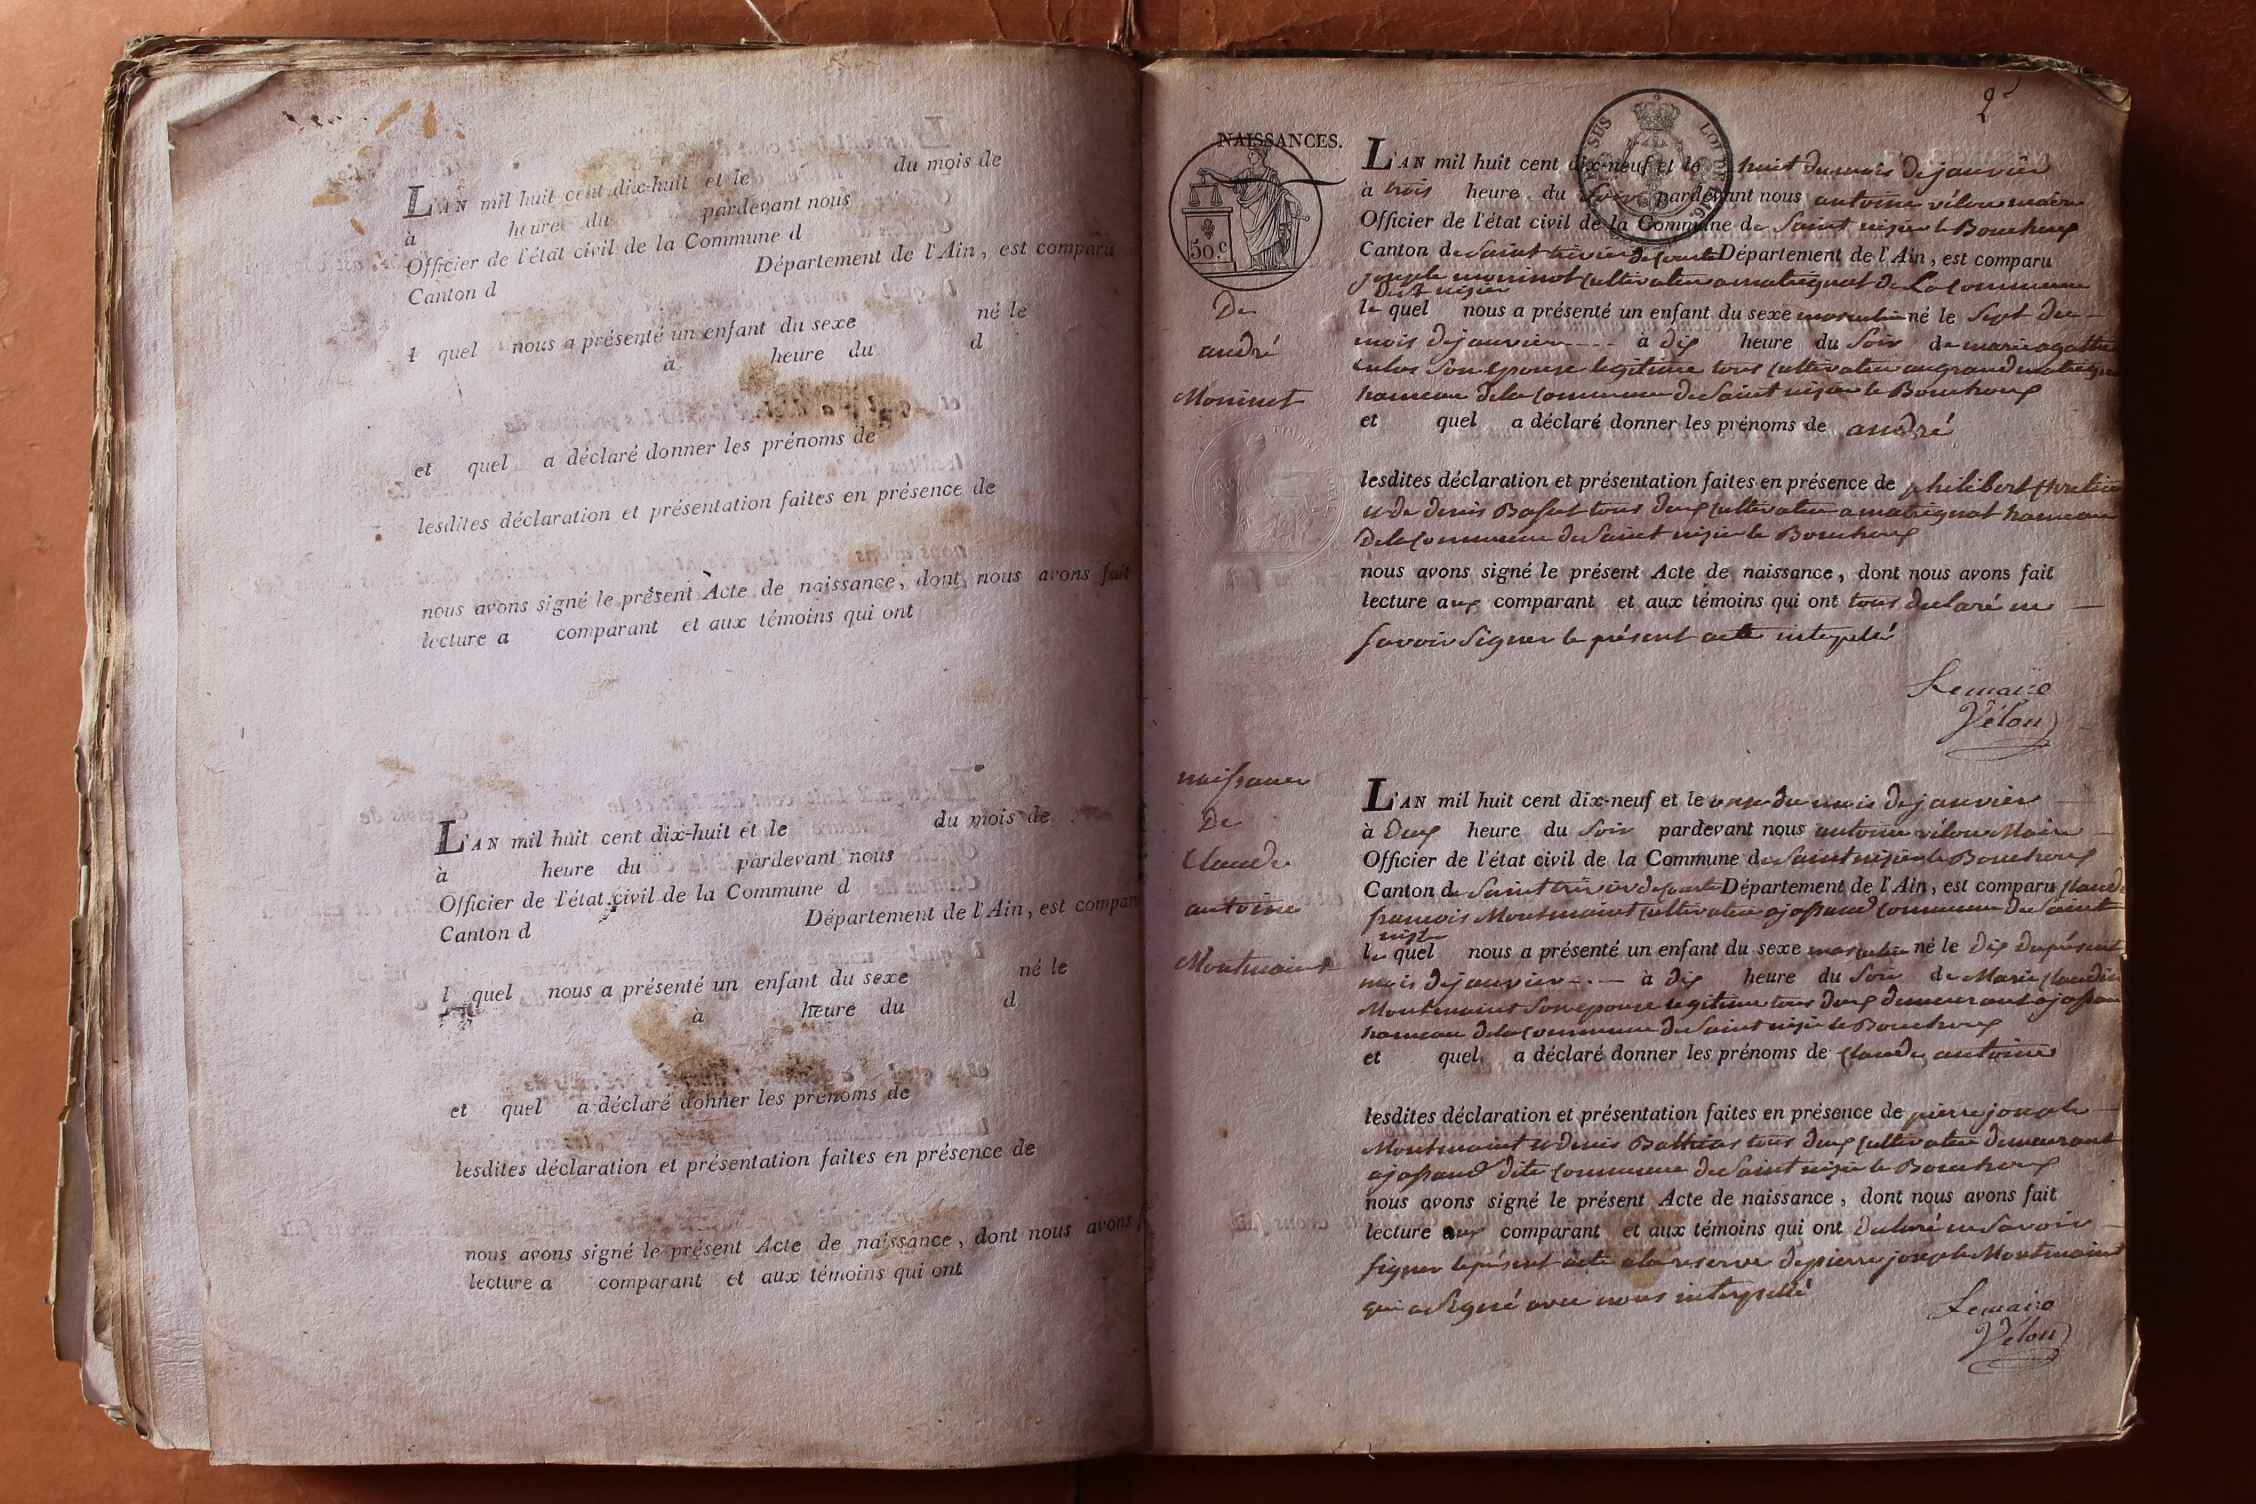 L'AN mil huit cent dix-huit et le du mois de
à heure du pardevant nous
Officier de l'état civil de la Commune d
Canton d Département de l'Ain, est comparu
l quel nous a présenté un enfant du sexe né le
à heure du d
et quel a déclaré donner les prénoms de
lesdites déclaration et présentation faites en présence de
nous avons signé le présent Acte de naissance, dont nous avons fait
lecture a comparant et aux témoins qui ont
L'AN mil huit cent dix-huit et le du mois de
à heure du pardevant nous
Officier de l'état civil de la Commune d
Canton d Département de l'Ain, est compar
l quel nous a présenté un enfant du sexe né le
à heure du d
et quel a déclaré donner les prénoms de
lesdites déclaration et présentation faites en présence de
nous avons signé le présent Acte de naissance, dont nous avons
lecture a comparant et aux témoins qui ont
2
NAISSANCES.
50.c
De
andré
Moninot
L'AN mil huit cent dix-neuf et le huit du mois de janvier
à trois heure du Soir pardevant nous antoine vélon maire
Officier de l'état civil de la Commune de Saint nizier le Bouchoux
Canton de Saint trivier de Courtes Département de l'Ain, est comparu
joseph moninot cultivateur a matregnat de La commune
de St nizier
le quel nous a présenté un enfant du sexe masculin né le Sept du
mois de janvier à dix heure du Soir de marie agathe
Son epouse legitime tous cultivateur au grand
hameau de la commune de Saint nizier le Bouchoux
et quel a déclaré donner les prénoms de andré
lesdites déclaration et présentation faites en présence de philibert
et de denis tous deux cultivateur a matregnat hameau
de la commune de Saint nizier le Bouchoux
nous avons signé le présent Acte de naissance, dont nous avons fait
lecture aux comparant et aux témoins qui ont tous declaré ne
Savoir Signer le présent acte interpellé
Le maire
Vélon
naissance
De
Claude
antoine
Montmaint
L'AN mil huit cent dix-neuf et le onze du mois de janvier
à deux heure du Soir pardevant nous antoine vélon Maire
Officier de l'état civil de la Commune de Saint nizier le Bouchoux
Canton de Saint trivier de Courtes Département de l'Ain, est comparu Claude
francois Montmaint cultivateur a jassand commune de Saint
nizier
le quel nous a présenté un enfant du sexe masculin né le dix du présent
mois de janvier à dix heure du Soir de Marie Claudine
Montmaint Son epouse legitime tous deux demeurant a jassand
hameau de la commune de Saint nizier le Bouchoux
et quel a déclaré donner les prénoms de Claude antoine
lesdites déclaration et présentation faites en présence de pierre joseph
Montmaint et denis tous deux cultivateur demeurant
a jassand dite commune de Saint nizier le Bouchoux
nous avons signé le présent Acte de naissance, dont nous avons fait
lecture aux comparant et aux témoins qui ont declaré ne Savoir
Signer le présent acte a la reserve de pierre joseph Montmaint
qui a Signé avec nous interpellé
Le maire
Vélon